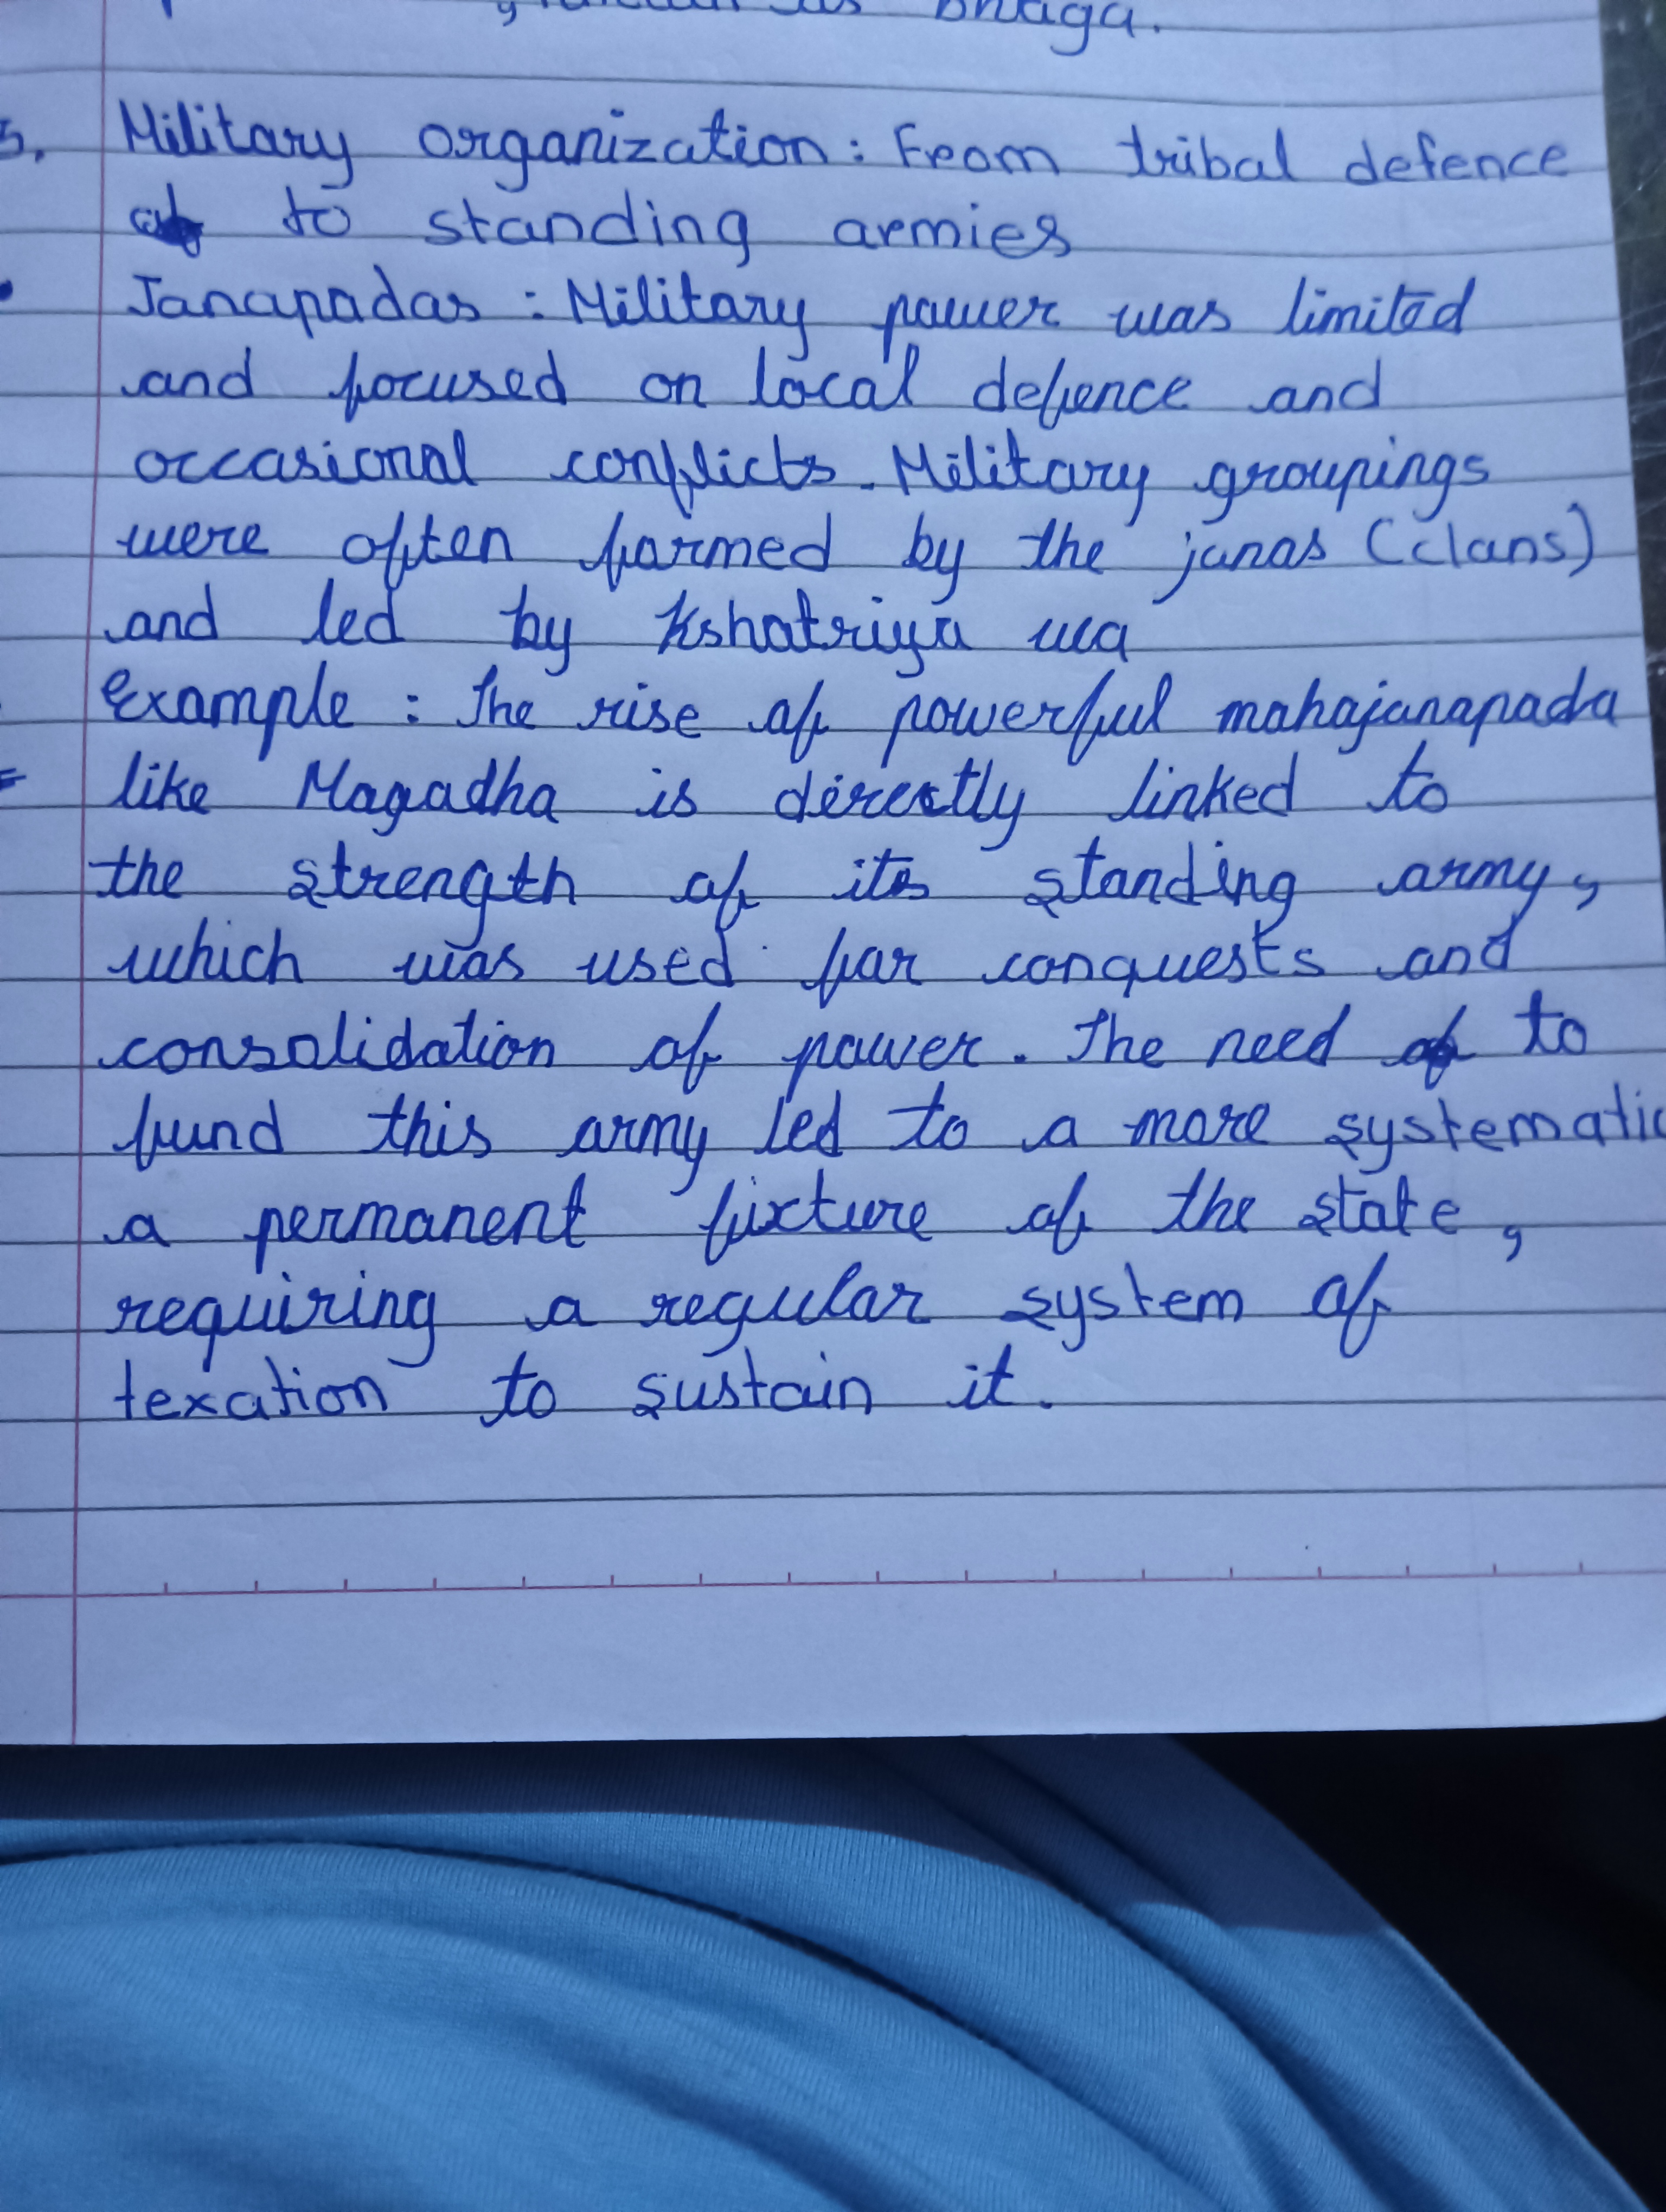 Bhaga.
5. Military organization : From tribal defence
to standing armies
• Janapadas : Military power was limited
and focused on local defence and
occasional conflicts. Military groupings
were often formed by the janas (clans)
and led by Kshatriya wa
Example : The rise of powerful mahajanapada
like Magadha is directly linked to
the strength of its standing army,
which was used for conquests and
consolidation of power. The need to
fund this army led to a more systematic
a permanent fixture of the state,
requiring a regular system of
texation to sustain it.